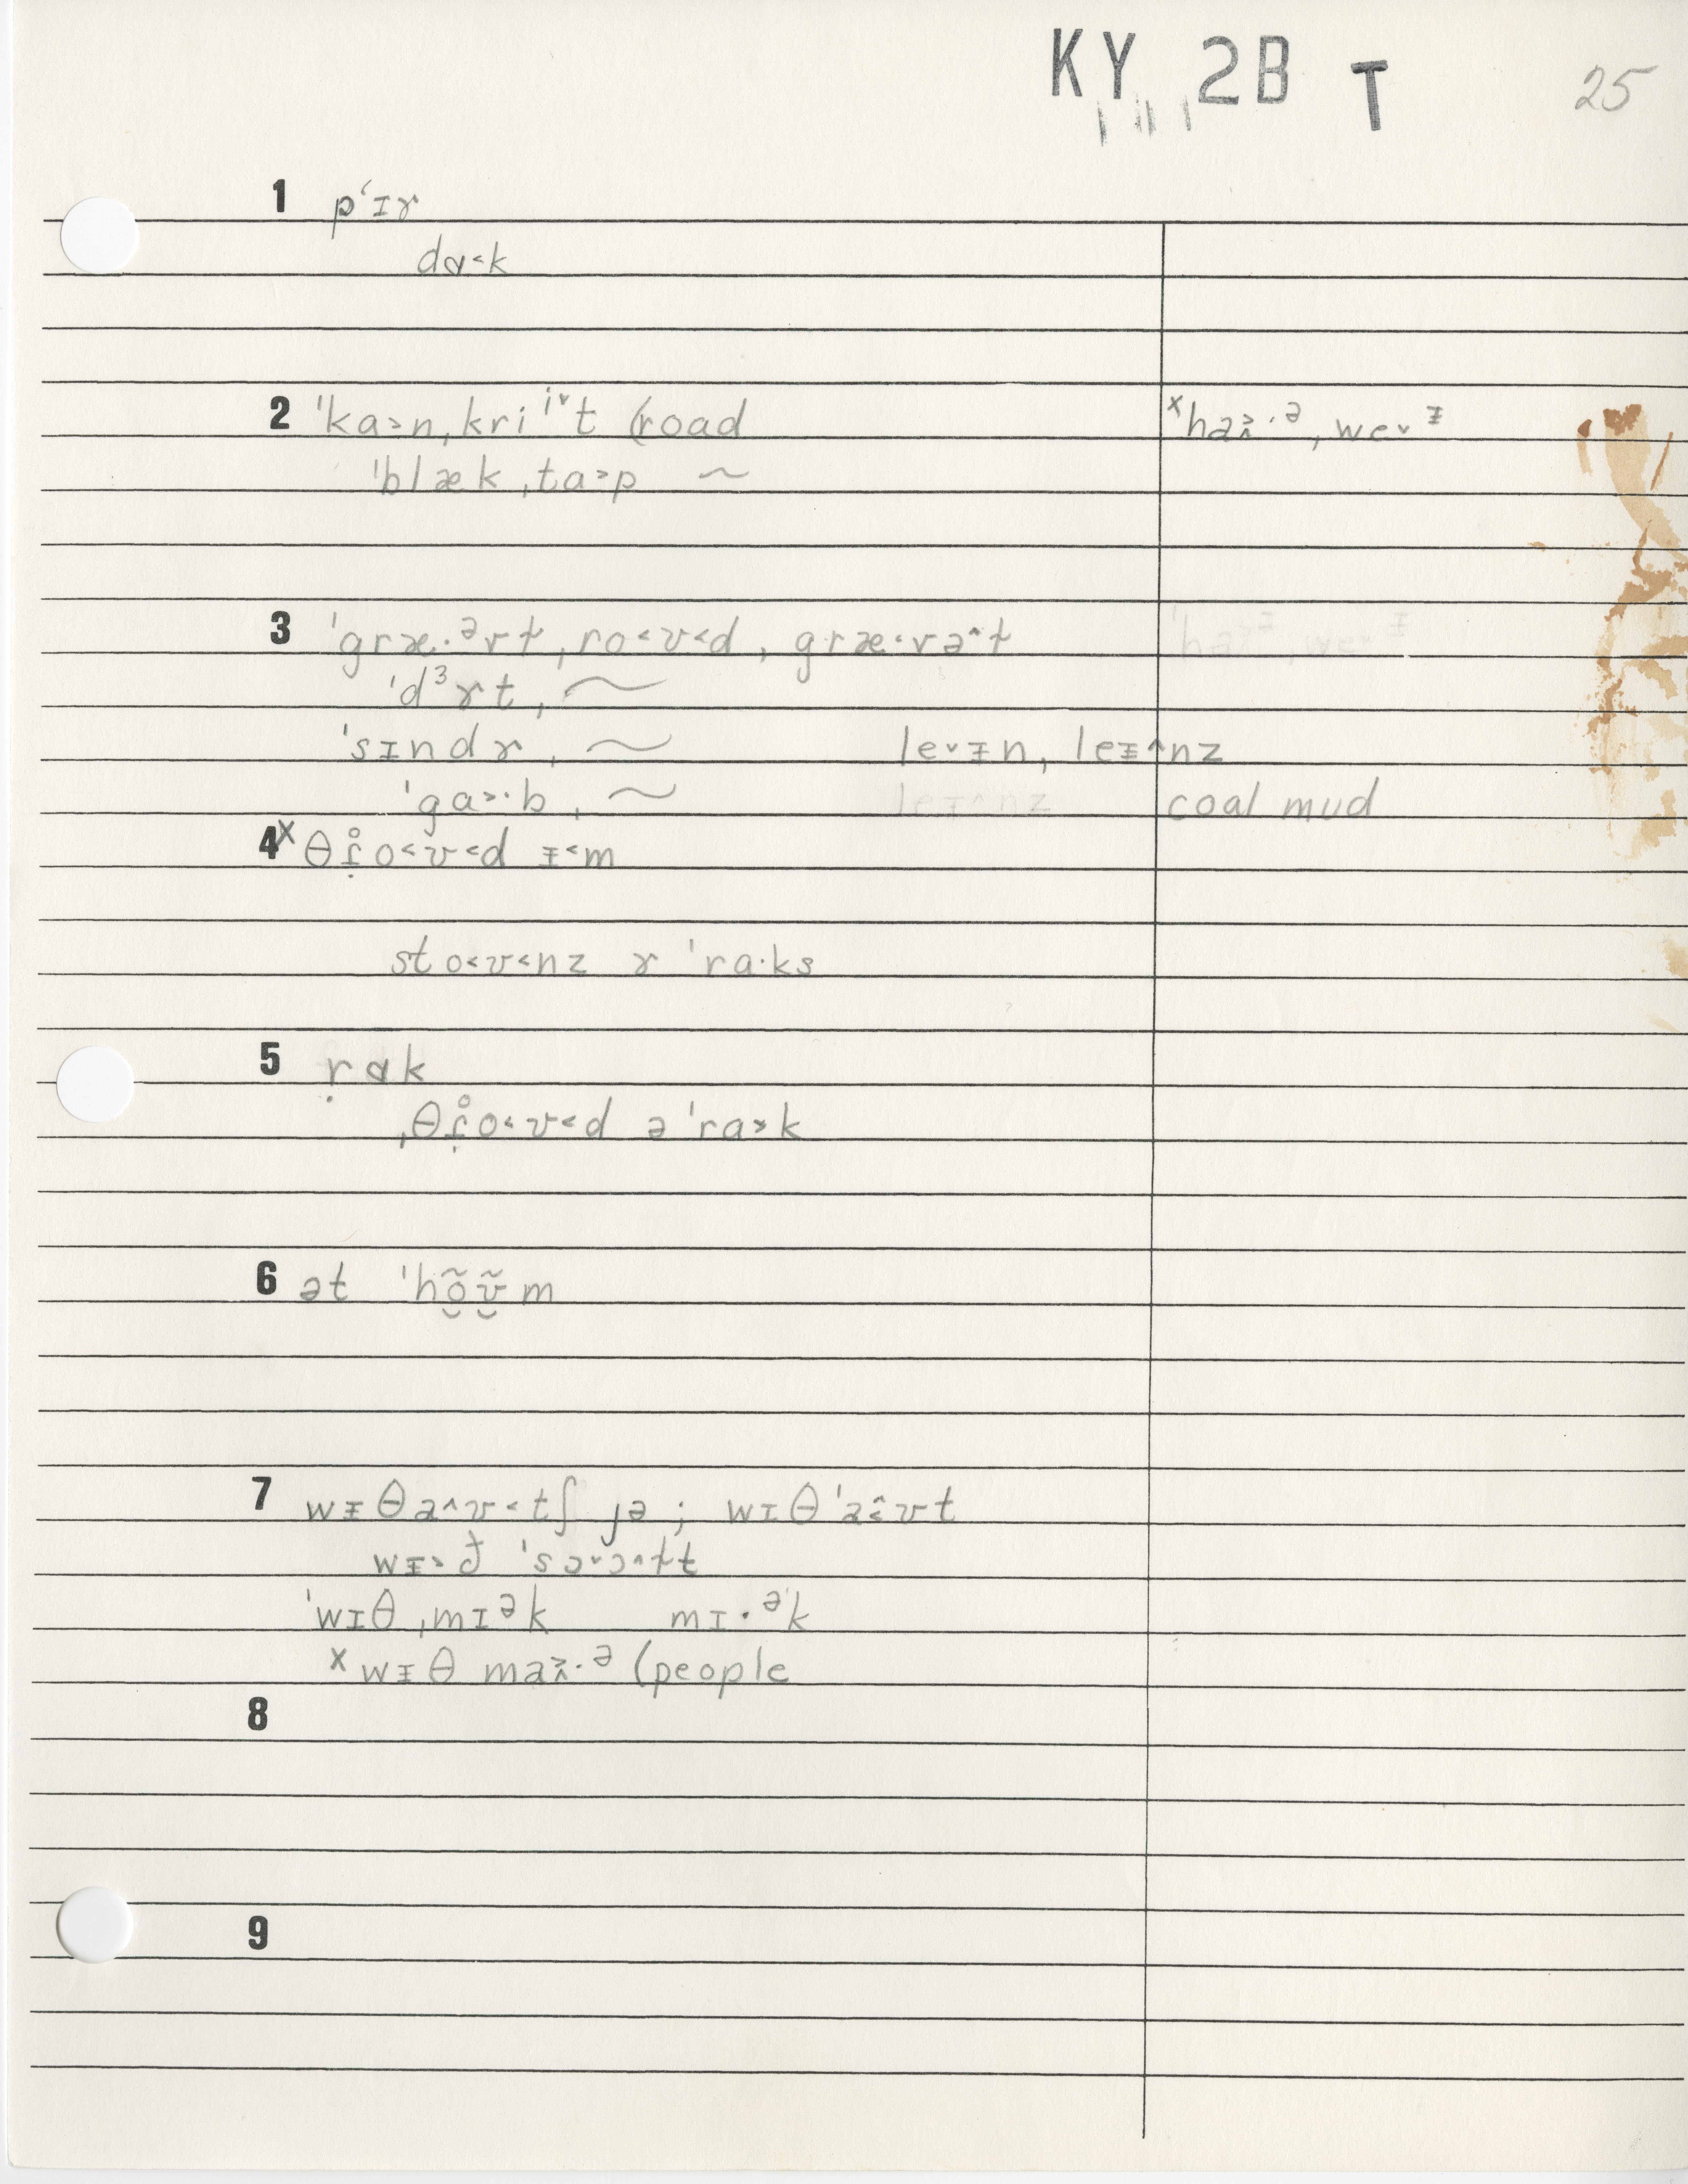 KY 2B T 25
1 pʻɪɤ
dɑ˂k
2 ˈka˃n,kriⁱ˅t (road
ˣhaɪ̯·ᵊ, we˅ᵻ
ˈblæk ˌta˃p ~
3 ˈgræ·ᵊvɫ ˌro˂ʊ˂d , græ·və^ɫ
ˈdᶟɤt, ~
ˈsɪndɤ ˌ~ le˅ᵻn, leᵻ^nz
ˈga˃·b ˌ~ coal mud
4 ˣθɾ̣̊o˂ʊ˂d ᵻ˂m
sto˂ʊ˂nz ɤ ˈra·ks
5 ṛɑk
ˌθɾ̣̊o˂ʊ˂d ə ˈra˃k
6 ət ˈhõ̮ʊ̮̃m
7 wᵻθa^ʊ˂tʃ jə ; wɪθˈa^˂ʊt
wᵻ˃ð ˈsɔ˅ɔ^ɫt
ˈwɪθ ˌmɪᵊk mɪ·ᵊk
ˣwᵻθ maɪ̯·ᵊ (people
8
9